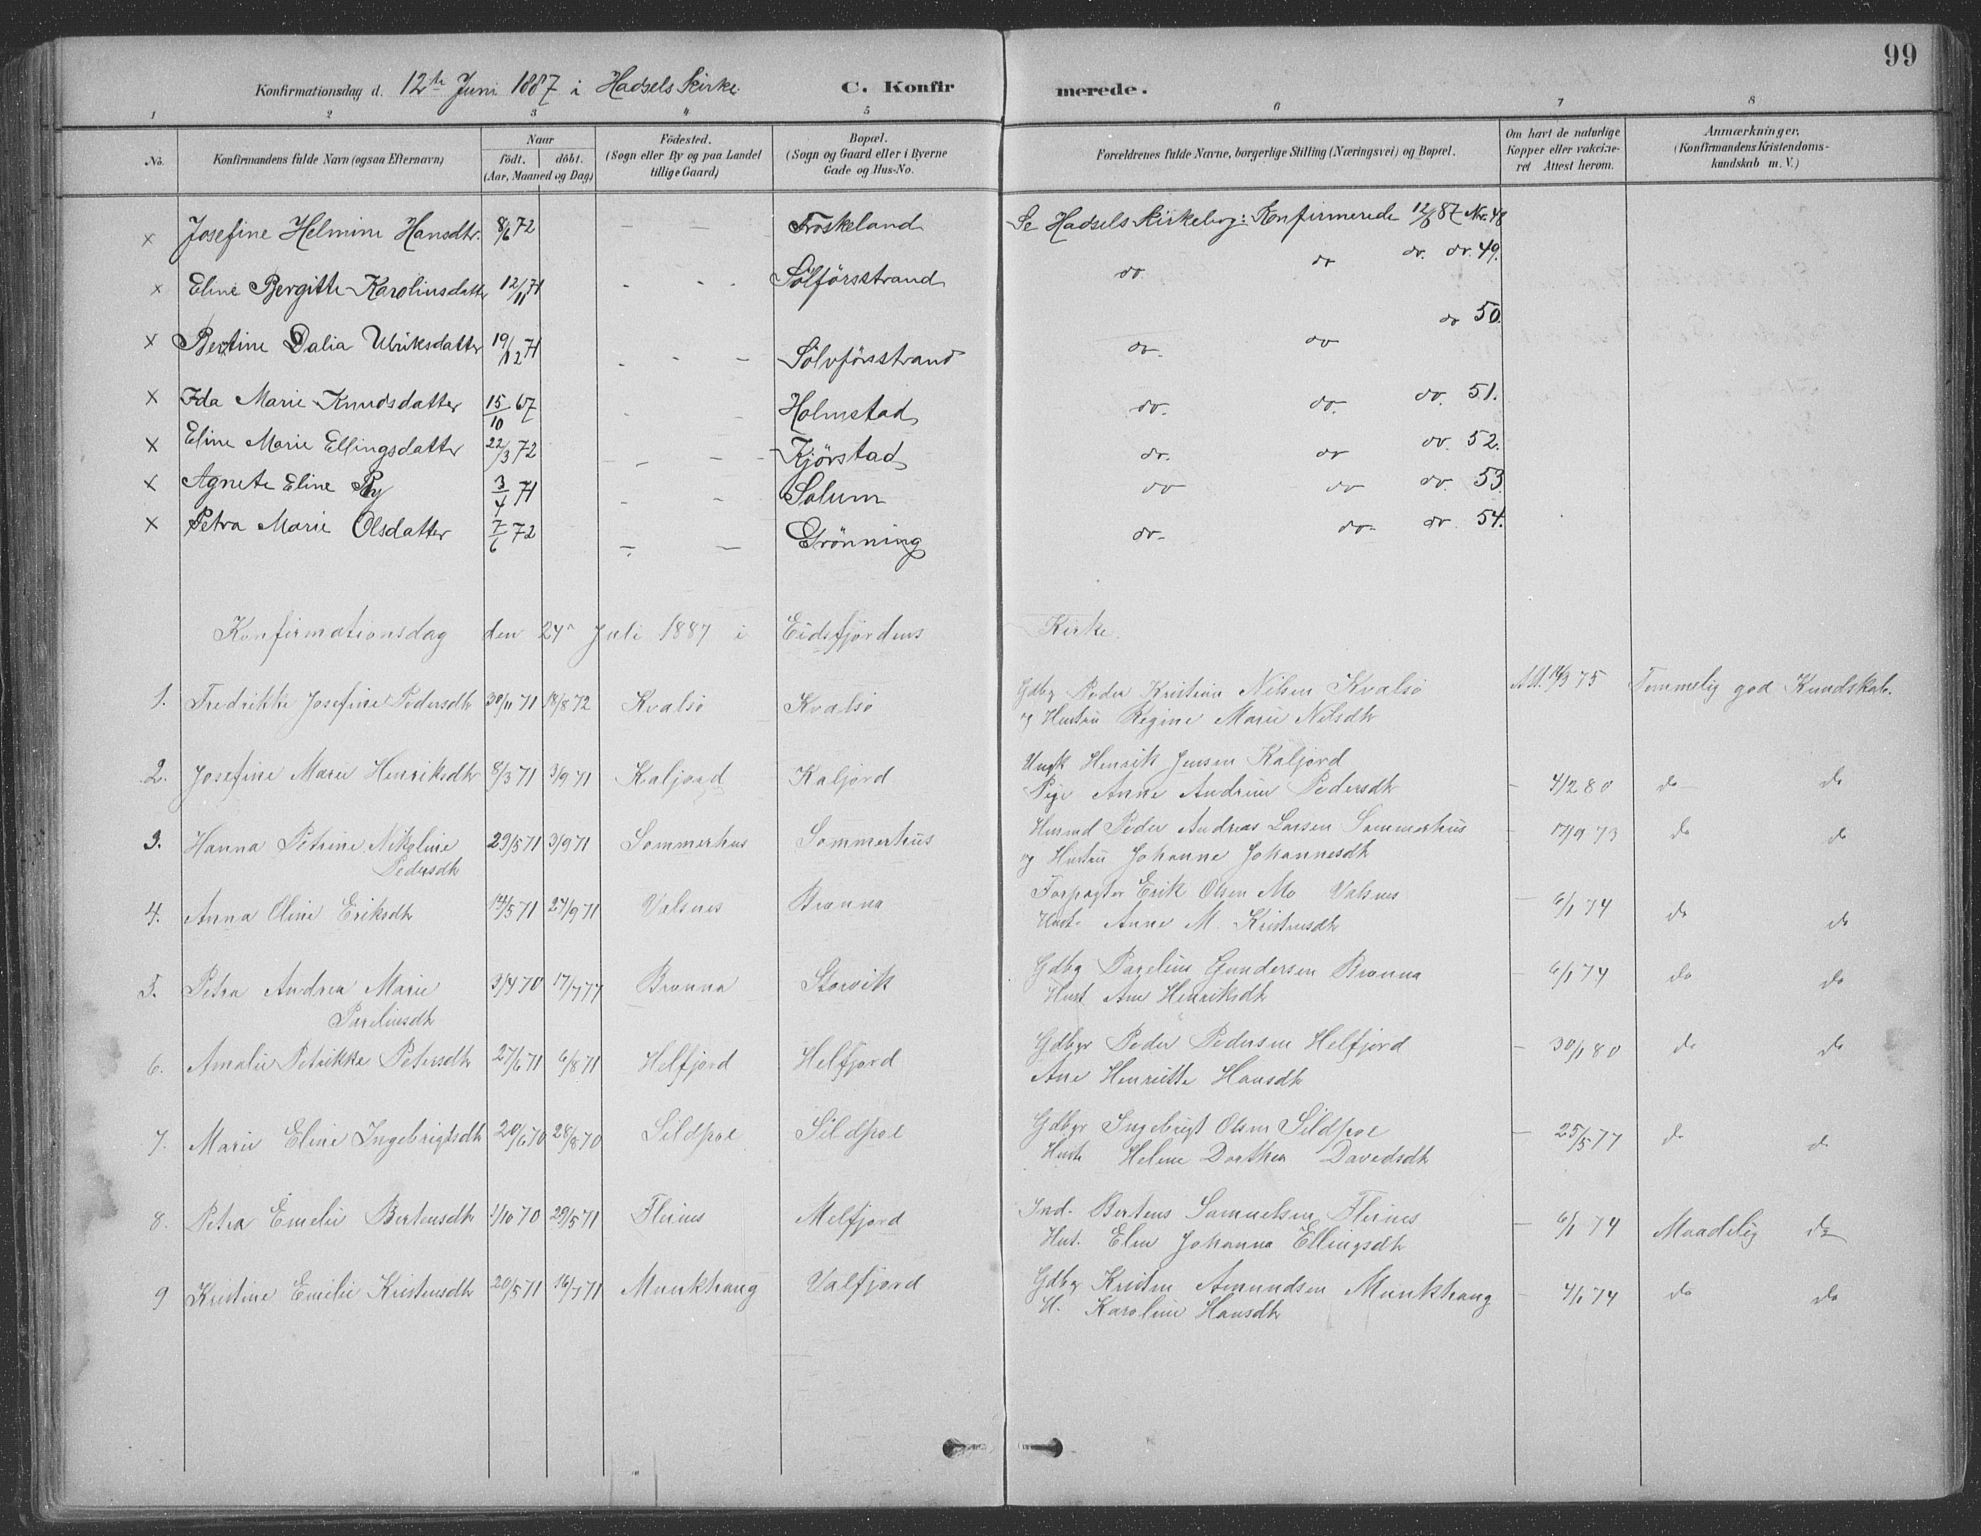 99
Konfirmationsdag d. 12te Juni 1887 i Hadsels Kirke. C. Konfirmerede.
1 2 3 4 5 6 7 8
No. Konfirmandens fulde Navn (ogsaa Efternavn) Naar födt. döbt. (Aar, Maaned og Dag) Födested. (Sogn eller By og paa Landet tillige Gaard) Bopæl. (Sogn og Gaard eller i Byerne Gade og Hus-No. Forældrenes fulde Navne, borgerlige Stilling (Næringsvei) og Bopæl. Om havt de naturlige Kopper eller vakcineret Attest herom. Anmærkninger. (Konfirmandens Kristendomskundskab m. V.)
x Josefine Helmine Hansdtr. 8/6 72 – – Froskeland Se Hadsels Kirkebog: Konfirmerede 12/6 87 Nr. 48
x Eline Bergitte Karolinsdatter 12/11 71 - - - Sölförsstrand do do do. do. 49.
x Bertine Dalia Ulriksdatter 19/12 71 - - Sölvförsstrand do. do do 50.
x Ida Marie Knudsdatter 15/10 67 - - Holmstad do. do. do. 51.
x Eline Marie Ellingsdatter 22/3 72 - - - Kjörstad do. do do. 52.
x Agnete Eline By 3/4 71 - - Solum do do do. 53.
x Petra Marie Olsdatter 7/6 72 – – Grönning do. do. do. 54.
Konfirmationsdag den 24de Juli 1887 i Eidsfjordens Kirke.
1. Fredrikke Josefine Pedersdtr 30/11 71 18/8 72 Kvalsö Kvalsö Gdbg Peder Kristian Nilsen Kvalsö Att. 14/9 75 Temmelig god Kundskab.
og Hustru Regine Marie Nilsdtr
2. Josefine Marie Henriksdtr 8/3 71 3/9 71 Kaljord Kaljord Ungk Henrik Jensen Kaljord
Pige Anne Andrine Pedersdtr - 4/2 80 do do
3. Hanna Petrine Nikoline 29/5 71 3/9 71 Sommerhus Sommerhus Husmd Peder Andreas Larsen Sommerhus - 17/9 73 do do
Pedersdtr og Hustru Johanne Johannesdtr
4. Anna Oline Eriksdtr 14/5 71 24/9 71 Valsnes Brønna Forpagter Erik Olsen Mo Valsnes - 6/1 74 do do
Hust. Anne M. Kristensdtr
5. Petra Andrea Marie 3/4 70 17/7 77 Brønna Storvik Gdbg Parelius Gundersen Brønna - 6/1 74 do do
Pareliusdtr Hust Ane Henriksdtr
6. Amalie Petrikke Petersdtr 27/6 71 6/8 71 Helfjord Helfjord Gdbgr Peder Pedersen Helfjord - 30/1 80 do do
Ane Henriette Hansdtr
7. Marie Eline Ingebrigtsdtr 20/6 70 28/8 70 Sildpol Sildpol Gdbgr Ingebrigt Olsen Sildpol - 25/5 77 do do
Hust. Helene Dorthea Davidsdtr
8. Petra Emelie Bertensdtr 1/10 70 29/5 71 Fleines Melfjord Ind. Bertens Samuelsen Fleines - 6/1 74 Maadelig do
Hust. Elen Johanna Ellingsdtr
9 Kristine Emilie Kristensdtr 20/5 71 16/7 71 Munkhaug Valfjord Gdbg Kristen Amundsen Munkhaug - 4/1 74 do do
H. Karoline Hansdtr